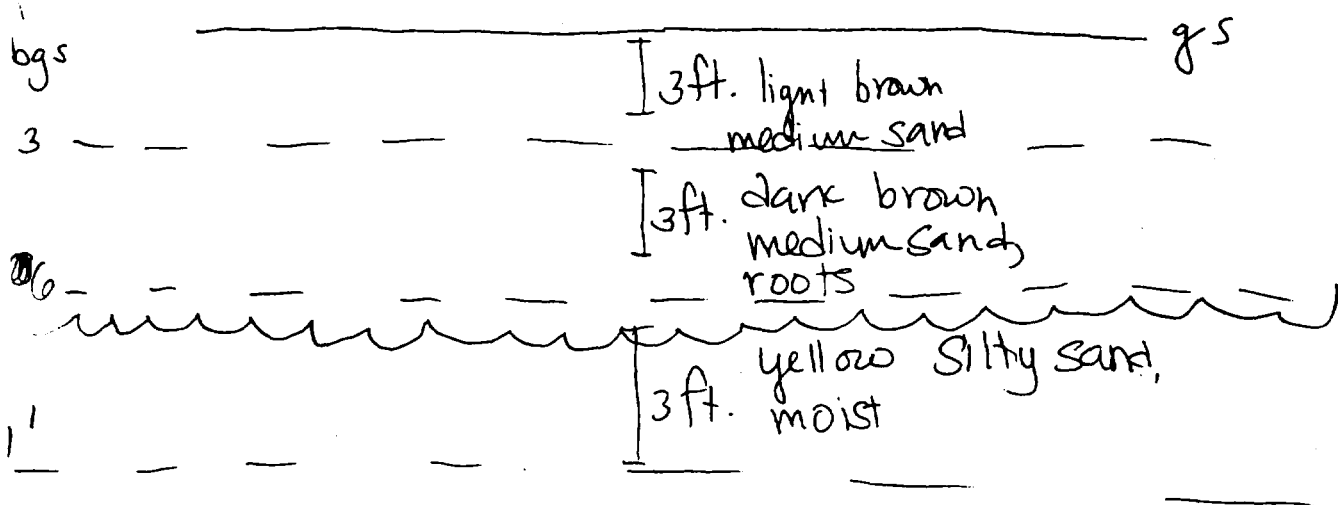 bgs
gs
3ft. light brown
medium sand
3
3ft. dark brown
medium sand,
roots
6
yellow silty sand,
3ft. moist